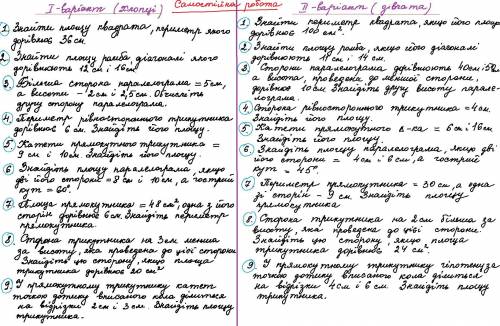 Самостійна робота
І-варіант (хлопці)
1 Знайти площу квадрата, периметр якого
дорівнює 36см.
2 Знайти площу ромба діагоналі якого
дорівнюють 12см і 16см.
3. Більша сторона паралелограма = 5см,
а висоти – 2см і 2,5см. Обчисліть
другу сторону паралелограма.
4. Периметр рівностороннього трикутника
дорівнює 6 см. Знайдіть його площу.
5. Катети прямокутного трикутника =
9 см і 10м. Знайдіть його площу.
6 Знайдіть площу паралелограма, якщо
дві його сторони = 8см і 10см, а гострий
кут = 60°.
7 Площа прямокутника = 48 см², одна з його
сторін дорівнює 6см. Знайдіть периметр
прямокутника.
8 Сторона трикутника на 3см менша
за висоту, яка проведена до цієї сторони
Знайдіть цю сторону, якщо площа
трикутника дорівнює 20 см²
9 У прямокутному трикутнику катет
точкою дотику вписаного кола ділиться
на відрізки 2см і 3см. Знайдіть площу
трикутника.
ІІ-варіант (дівчата)
1 Знайти периметр квадрата, якщо його площа
дорівнює 100 см².
2 Знайти площу ромба, якщо його діагоналі
дорівнюють 11см і 14см.
3. Сторони паралелограма, дорівнюють 40см і 50см
а висота, проведена до меншої сторони,
дорівнює 10см. Знайдіть другу висоту парале-
лограма.
4. Сторона рівностороннього трикутника = 4см.
Знайдіть його площу.
5 Катети прямокутного Δ-ка = 6см і 16см
Знайдіть його площу.
6. Знайдіть площу паралелограма, якщо дві
його сторони = 4см і 6см, а гострий
кут = 45°.
7 Периметр прямокутника = 30см, а одна
зі сторін – 9 см. Знайдіть площу
прямокутника.
8 Сторона трикутника на 2см більша за
висоту, яка проведена до цієї сторони.
Знайдіть цю сторону, якщо площа
трикутника дорівнює 24 см².
9 У прямокутному трикутнику гіпотенуза
точкою дотику вписаного кола ділиться
на відрізки 4см і 6см. Знайдіть площу
трикутника.